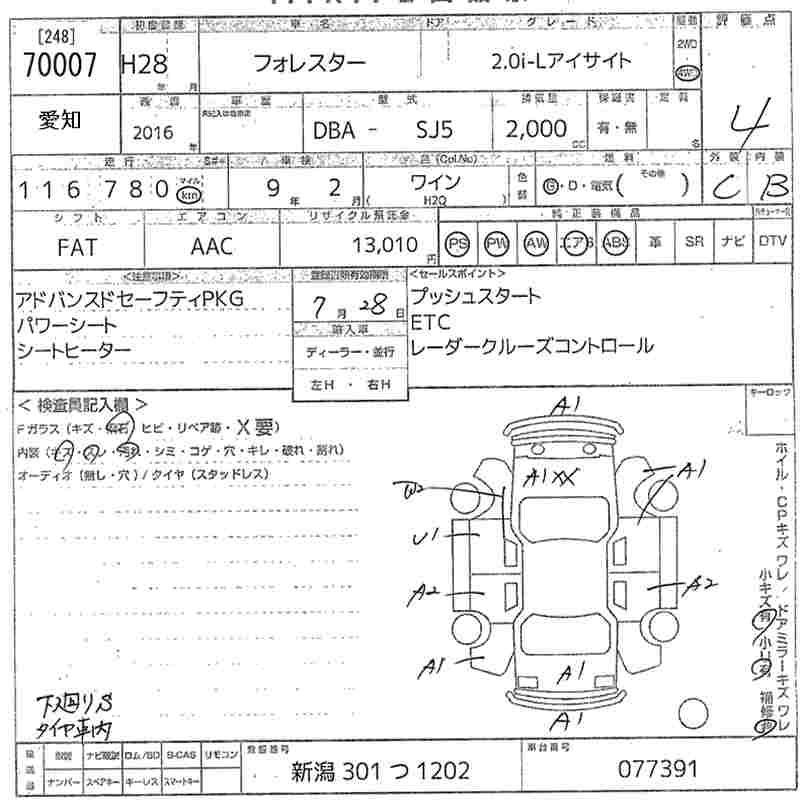 [248]
70007
初度登録
H28
年 月
車名
フォレスター
ドア
グレード
2.0i-Lアイサイト
駆動
2WD
4WD
評価点
4
愛知
2016
年
車歴
型式
DBA - SJ5
排気量
2,000
cc
保証書
有・無
定員
名
外装
C
内装
B
走行
116780
マイル
km
車検
9年 2月
色(Col.No)
ワイン
( H2O )
色替
燃料
G・D・電気( その他 )
シフト
FAT
エアコン
AAC
リサイクル預託金
13,010
円
純正装備品
PS PW AW エアB ABS 革 SR ナビ DTV
<注意事項>
アドバンスドセーフティPKG
パワーシート
シートヒーター
7月28日
輸入車
ディーラー・並行
左H ・ 右H
<セールスポイント>
プッシュスタート
ETC
レーダークルーズコントロール
キーロック
<検査員記入欄>
Fガラス(キズ・飛石 ヒビ・リペア跡・X要)
内装(キズ・スレ・汚れ・シミ・コゲ・穴・キレ・破れ・割れ)
オーディオ(無し・穴)/タイヤ(スタッドレス)
A1
A1XX
A1
W2
U1
A2
A2
A1
A1
A1
ホイル・CPキズワレ/ドアミラーキズワレ
小キズ有 小U有 補修跡
下廻りS
タイヤ車内
ナビ取説 ロム/SD B-CAS リモコン
ナンバー スペアキー キーレス スマートキー
登録番号
新潟 301 つ 1202
車台番号
077391